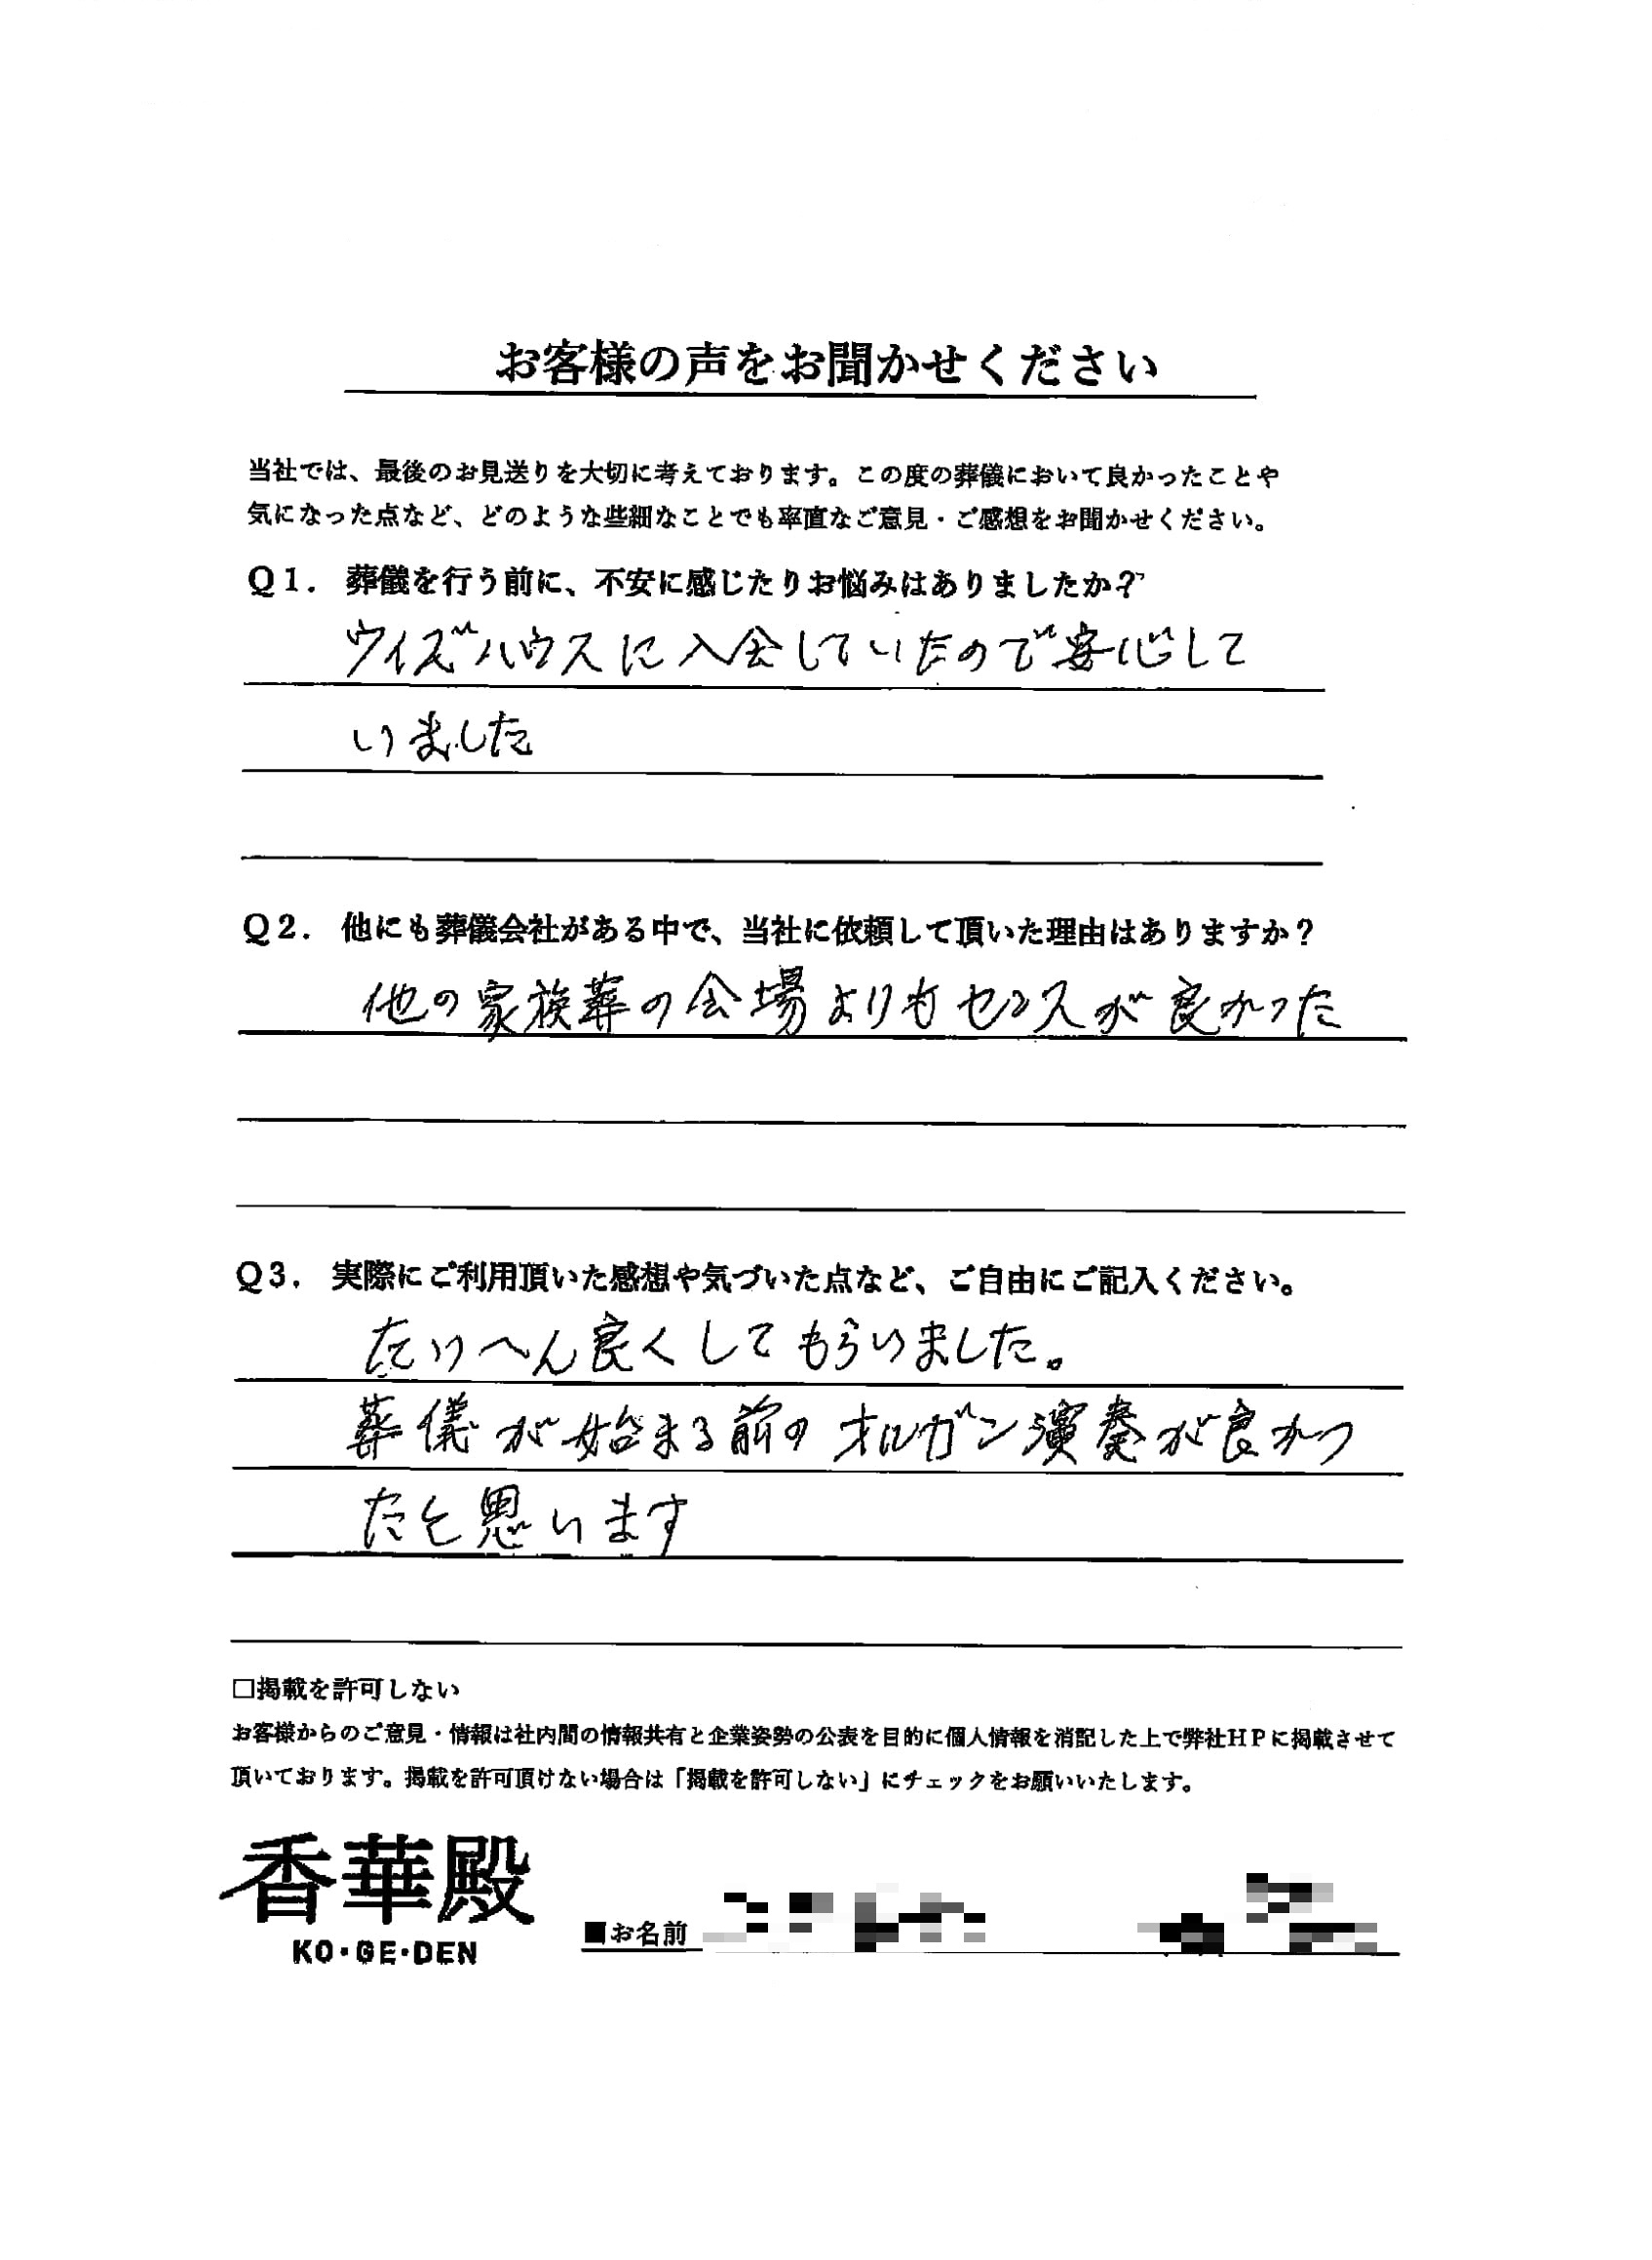 お客様の声をお聞かせください
当社では、最後のお見送りを大切に考えております。この度の葬儀において良かったことや
気になった点など、どのような些細なことでも率直なご意見・ご感想をお聞かせください。
Q1. 葬儀を行う前に、不安に感じたりお悩みはありましたか？
ウイズハウスに入会していたので安心して
いました
Q2. 他にも葬儀会社がある中で、当社に依頼して頂いた理由はありますか？
他の家族葬の会場よりもセンスが良かった
Q3. 実際にご利用頂いた感想や気づいた点など、ご自由にご記入ください。
たいへん良くしてもらいました。
葬儀が始まる前のオルガン演奏が良かっ
たと思います
□掲載を許可しない
お客様からのご意見・情報は社内間の情報共有と企業姿勢の公表を目的に個人情報を消記した上で弊社HPに掲載させて
頂いております。掲載を許可頂けない場合は「掲載を許可しない」にチェックをお願いいたします。
香華殿
KO・GE・DEN
■お名前